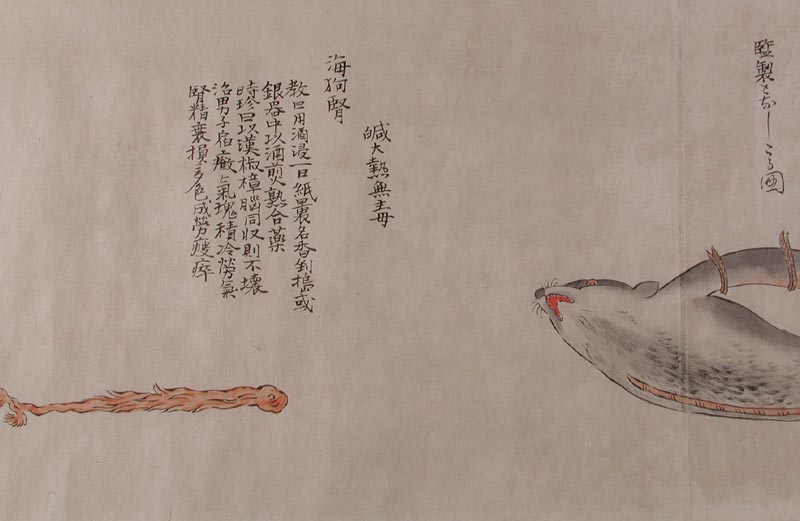 塩製となしたる図
海狗腎
鹹大熱無主毋
教曰用酒浸一日紙裹炙香剉搗或
銀器中以酒煎熟合薬
時珍曰以漢椒樟脳同収則不壊
治男子宿癥気塊積冷労気
腎精衰損多色成労瘦瘁